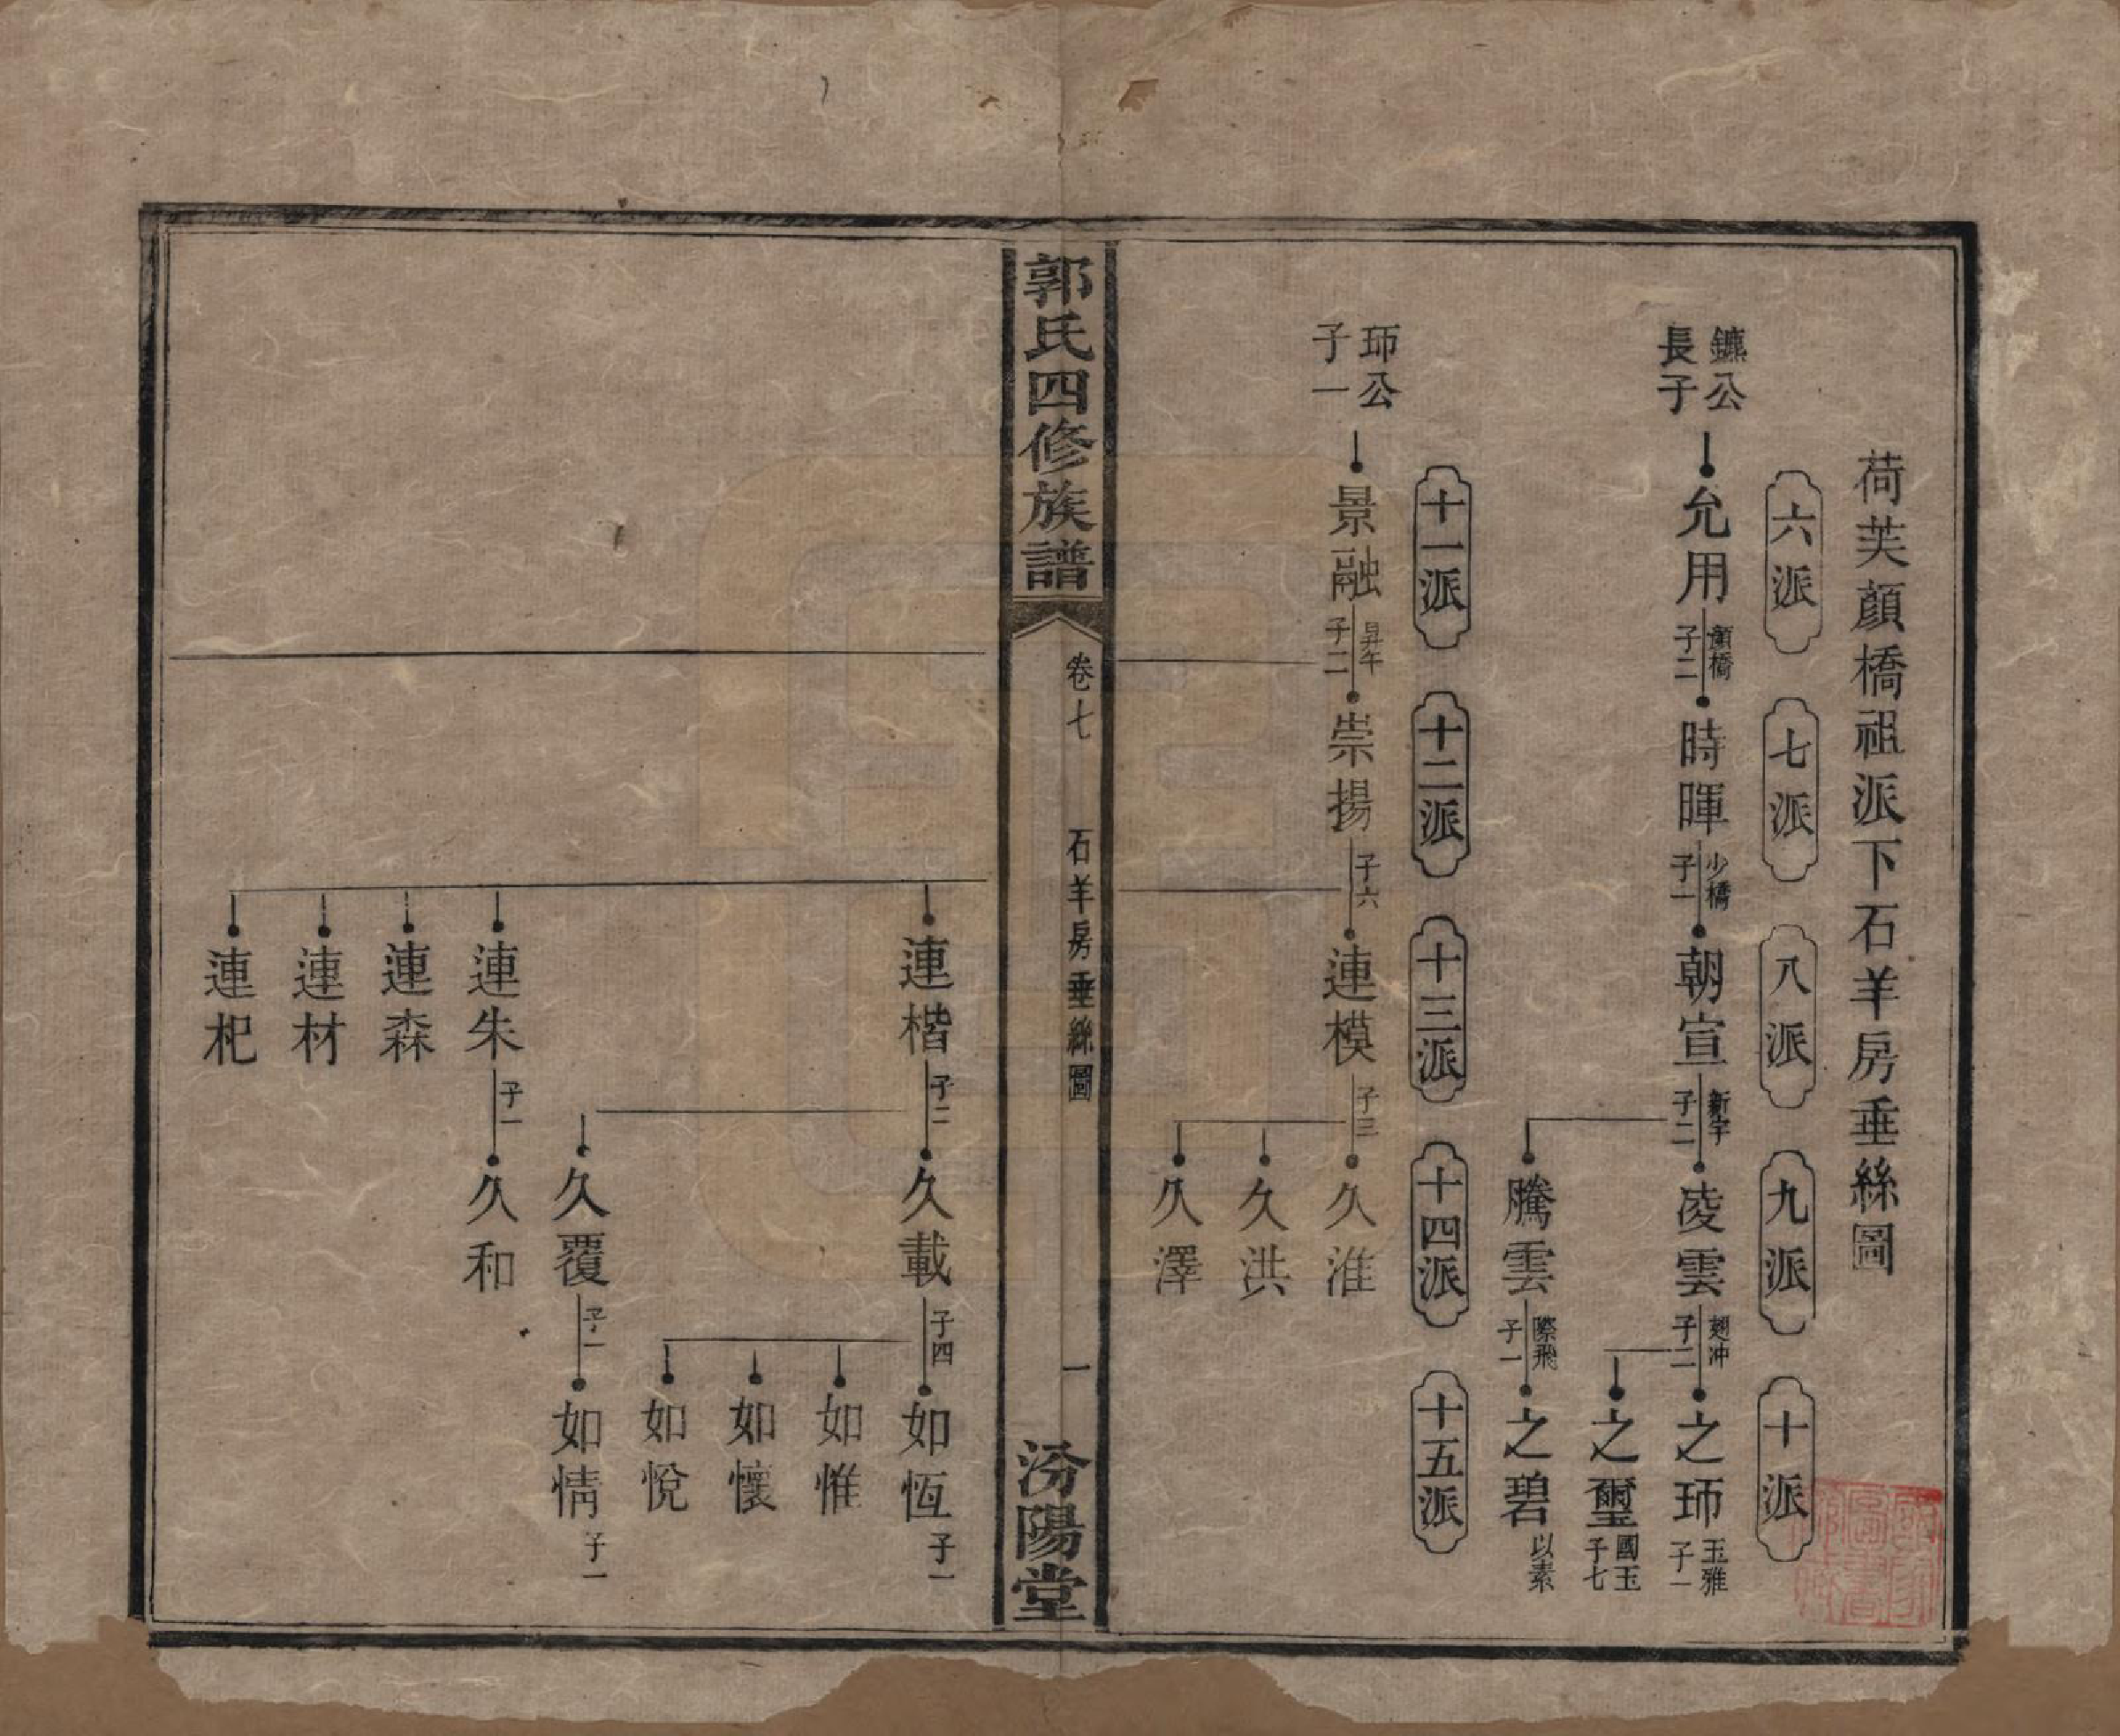 荷芙顏橋祖派下石羊房垂絲圖
六派
七派
八派
九派
十派
鑣公
長子
允用
顏橋
子二
時暉
少橋
子一
朝宣
新宇
子二
凌雲
翅冲
子二
之珘
玉雅
子一
之璽
國玉
子七
騰雲
際飛
子一
之碧
以素
十一派
十二派
十三派
十四派
十五派
公
子一
景融
昇午
子二
崇揚
子六
連模
子三
久淮
久洪
久澤
郭氏四修族譜
卷七
石羊房垂絲圖
一
汾陽堂
連楷
子二
久載
子四
如恆
子一
如惟
如懷
如悅
久覆
子一
如情
子一
連朱
子一
久和
連森
連材
連杞